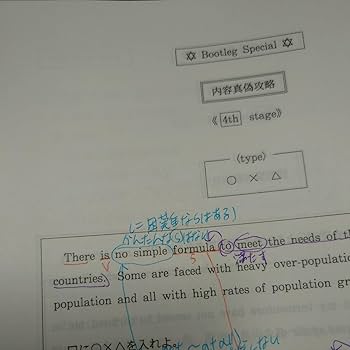 ✡ Bootleg Special ✡
内容真偽攻略
《 4th stage》
(type)
○ × △
(に困難ならばある)
かんたんな
There is no simple formula to meet the needs of
V S 満たす
countries. Some are faced with heavy over-population
population and all with high rates of population
□に○×△を入れよ。